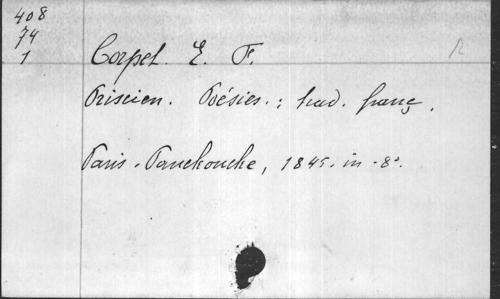 408
74
1
Corpet. E. F.
Priscien. Poésies. ; trad. franç.
Paris. Panckoucke, 1845. in-8°.